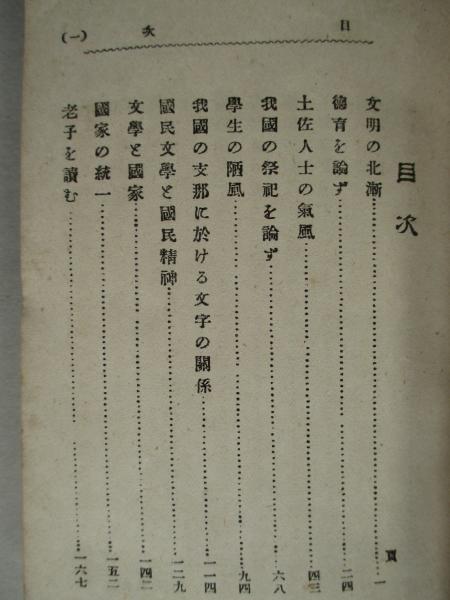 目次 (一)
目次
頁
文明の北漸……一
德育を論ず……二四
土佐人士の氣風……四三
我國の祭祀を論ず……六八
學生の陋風……九四
我國の支那に於ける文字の關係……一一四
國民文學と國民精神……一二九
文學と國家……一四二
國家の統一……一五二
老子を讀む……一六七